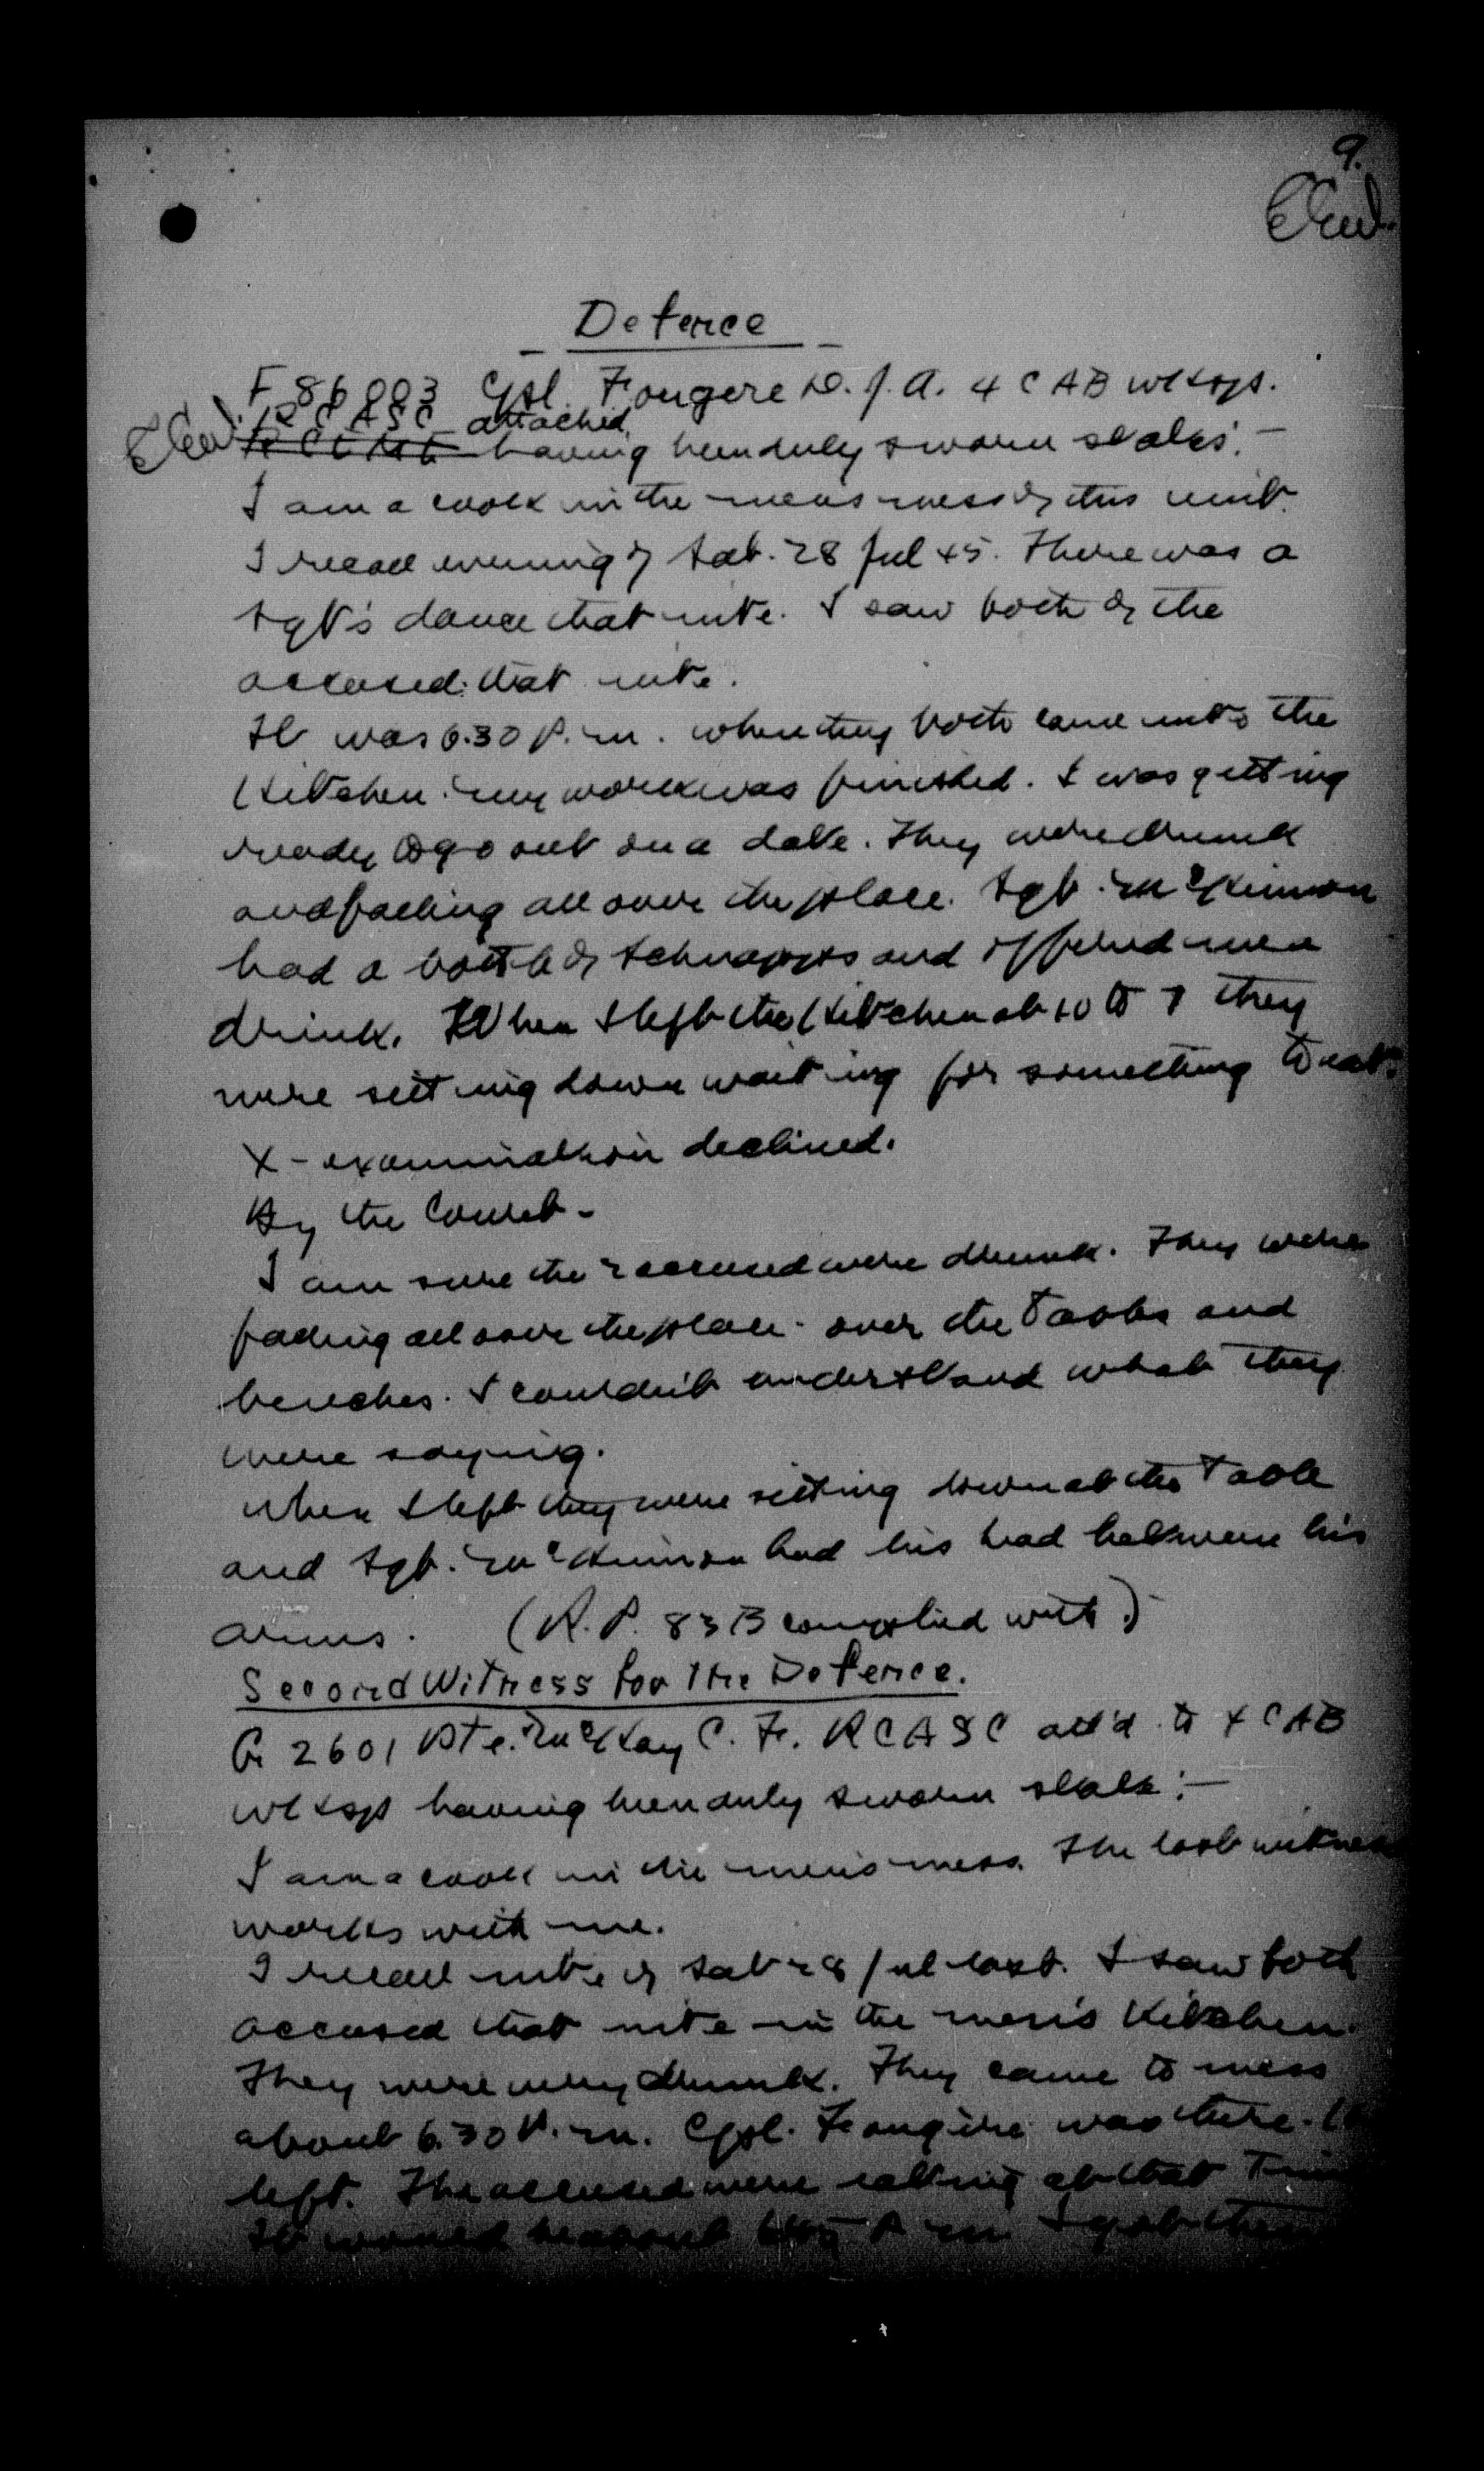 9.
Defence
F 86003 Cpl. Fougere D.J.A. 4 CAB wksps.
RCASC attached
having been duly sworn states:—
I am a cook in the mens mess of this unit.
I recall evening of Sat. 28 Jul 45. There was a
Sgt's dance that nite. I saw both of the
accused that nite.
It was 6.30 P.m. when they both came into the
Kitchen. my work was finished. I was getting
ready to go out on a date. They were drunk
and falling all over the place. Sgt. McKinnon
had a bottle of schnapps and offered me a
drink. When I left the Kitchen at 10 to 7 they
were sitting down waiting for something to eat.
X-examination declined.
By the Court-
I am sure the 2 accused were drunk. They were
falling all over the place - over the Tables and
benches. I couldn't understand what they
were saying.
when I left they were sitting down at the Table
and Sgt. McKinnon had his head between his
arms. (R.P. 83B complied with)
Second Witness for the Defence.
G 2601 Pte. McKay C.F. RCASC att'd to 4 CAB
wksp having been duly sworn states:—
I am a cook in the men's mess. The last witness
works with me.
I recall nite of Sat 28 Jul last. I saw both
accused that nite in the men's Kitchen.
They were very drunk. They came to mess
about 6.30 P.m. Cpl. Fougere was there.
left. The accused were eating at that Time
It would be about P.m. I got them